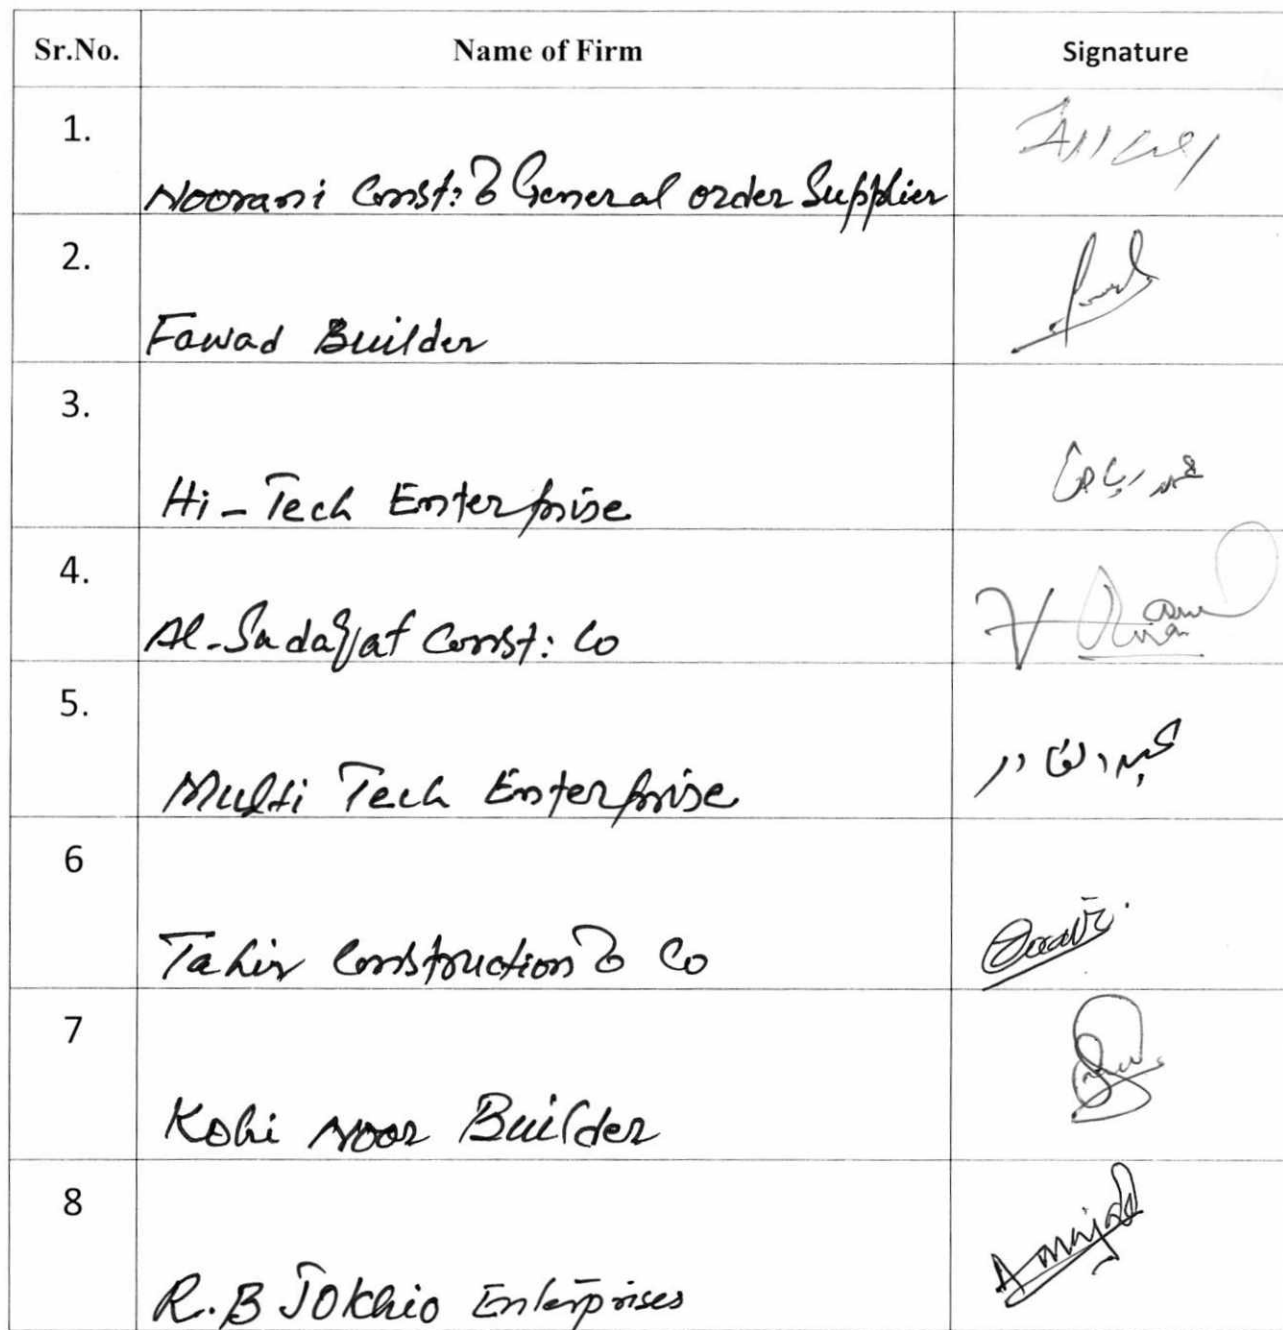 Sr.No. Name of Firm Signature
1.
Noorani Const: & General order Supplier
2.
Fawad Builder
3.
Hi-Tech Enterprise
4.
Al-Sadaqat Const: Co
5.
Multi Tech Enterprise عبدالقادر
6
Tahir Construction & Co
7
Kohi Noor Builder
8
R.B Jokhio Enterprises Amjad